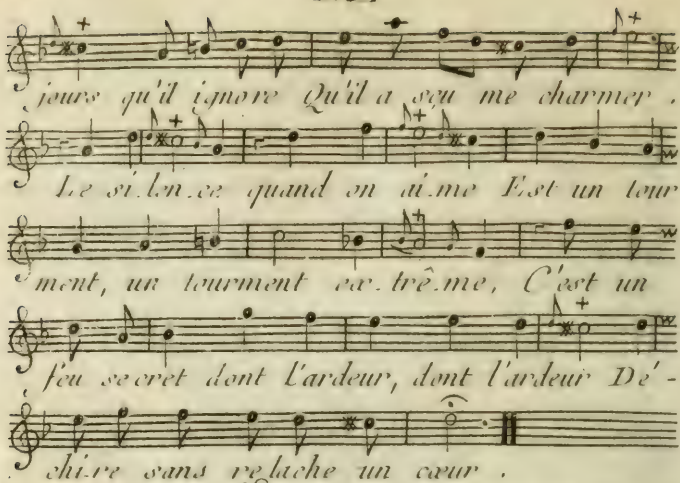 jours qu'il ignore Qu'il a sçu me charmer.
Le si-len-ce quand on ai-me Est un tour
ment, un tourment ex-trê-me, C'est un
feu secret dont l'ardeur, dont l'ardeur Dé-
chi-re sans relache un cœur.